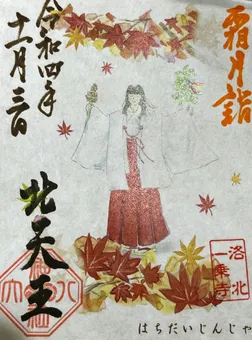 霜月詣
令和四年
十一月三日
北天王
洛北
一乗寺
はちだいじんじゃ